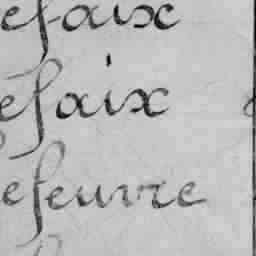 efaix
efaix
efeuvre